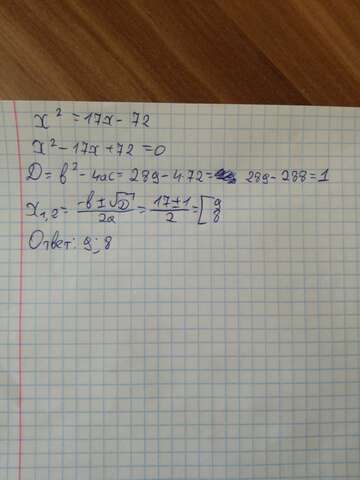 x² = 17x - 72
x² - 17x + 72 = 0
D = b² - 4ac = 289 - 4·72 = 289 - 288 = 1
x₁,₂ = (-b ± √D)/2a = (17 ± 1)/2 = [9 8
Ответ: 9; 8